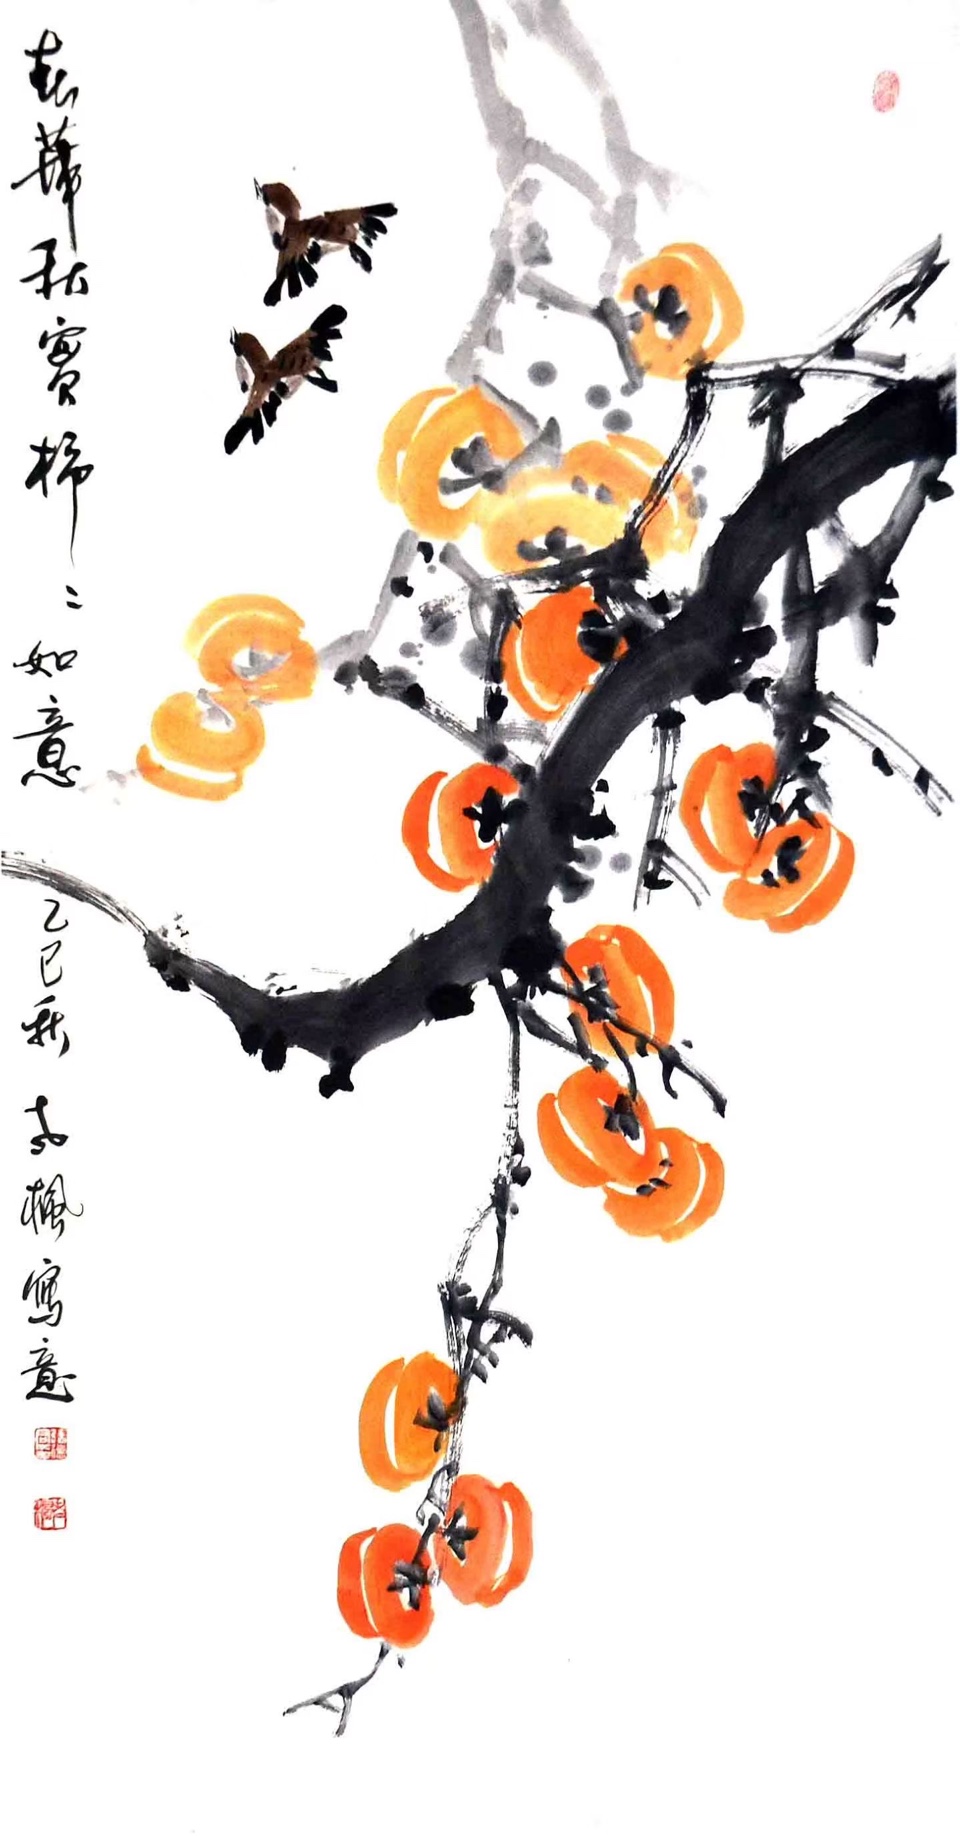 春華秋實柿〻如意
乙巳秋
楓寫意